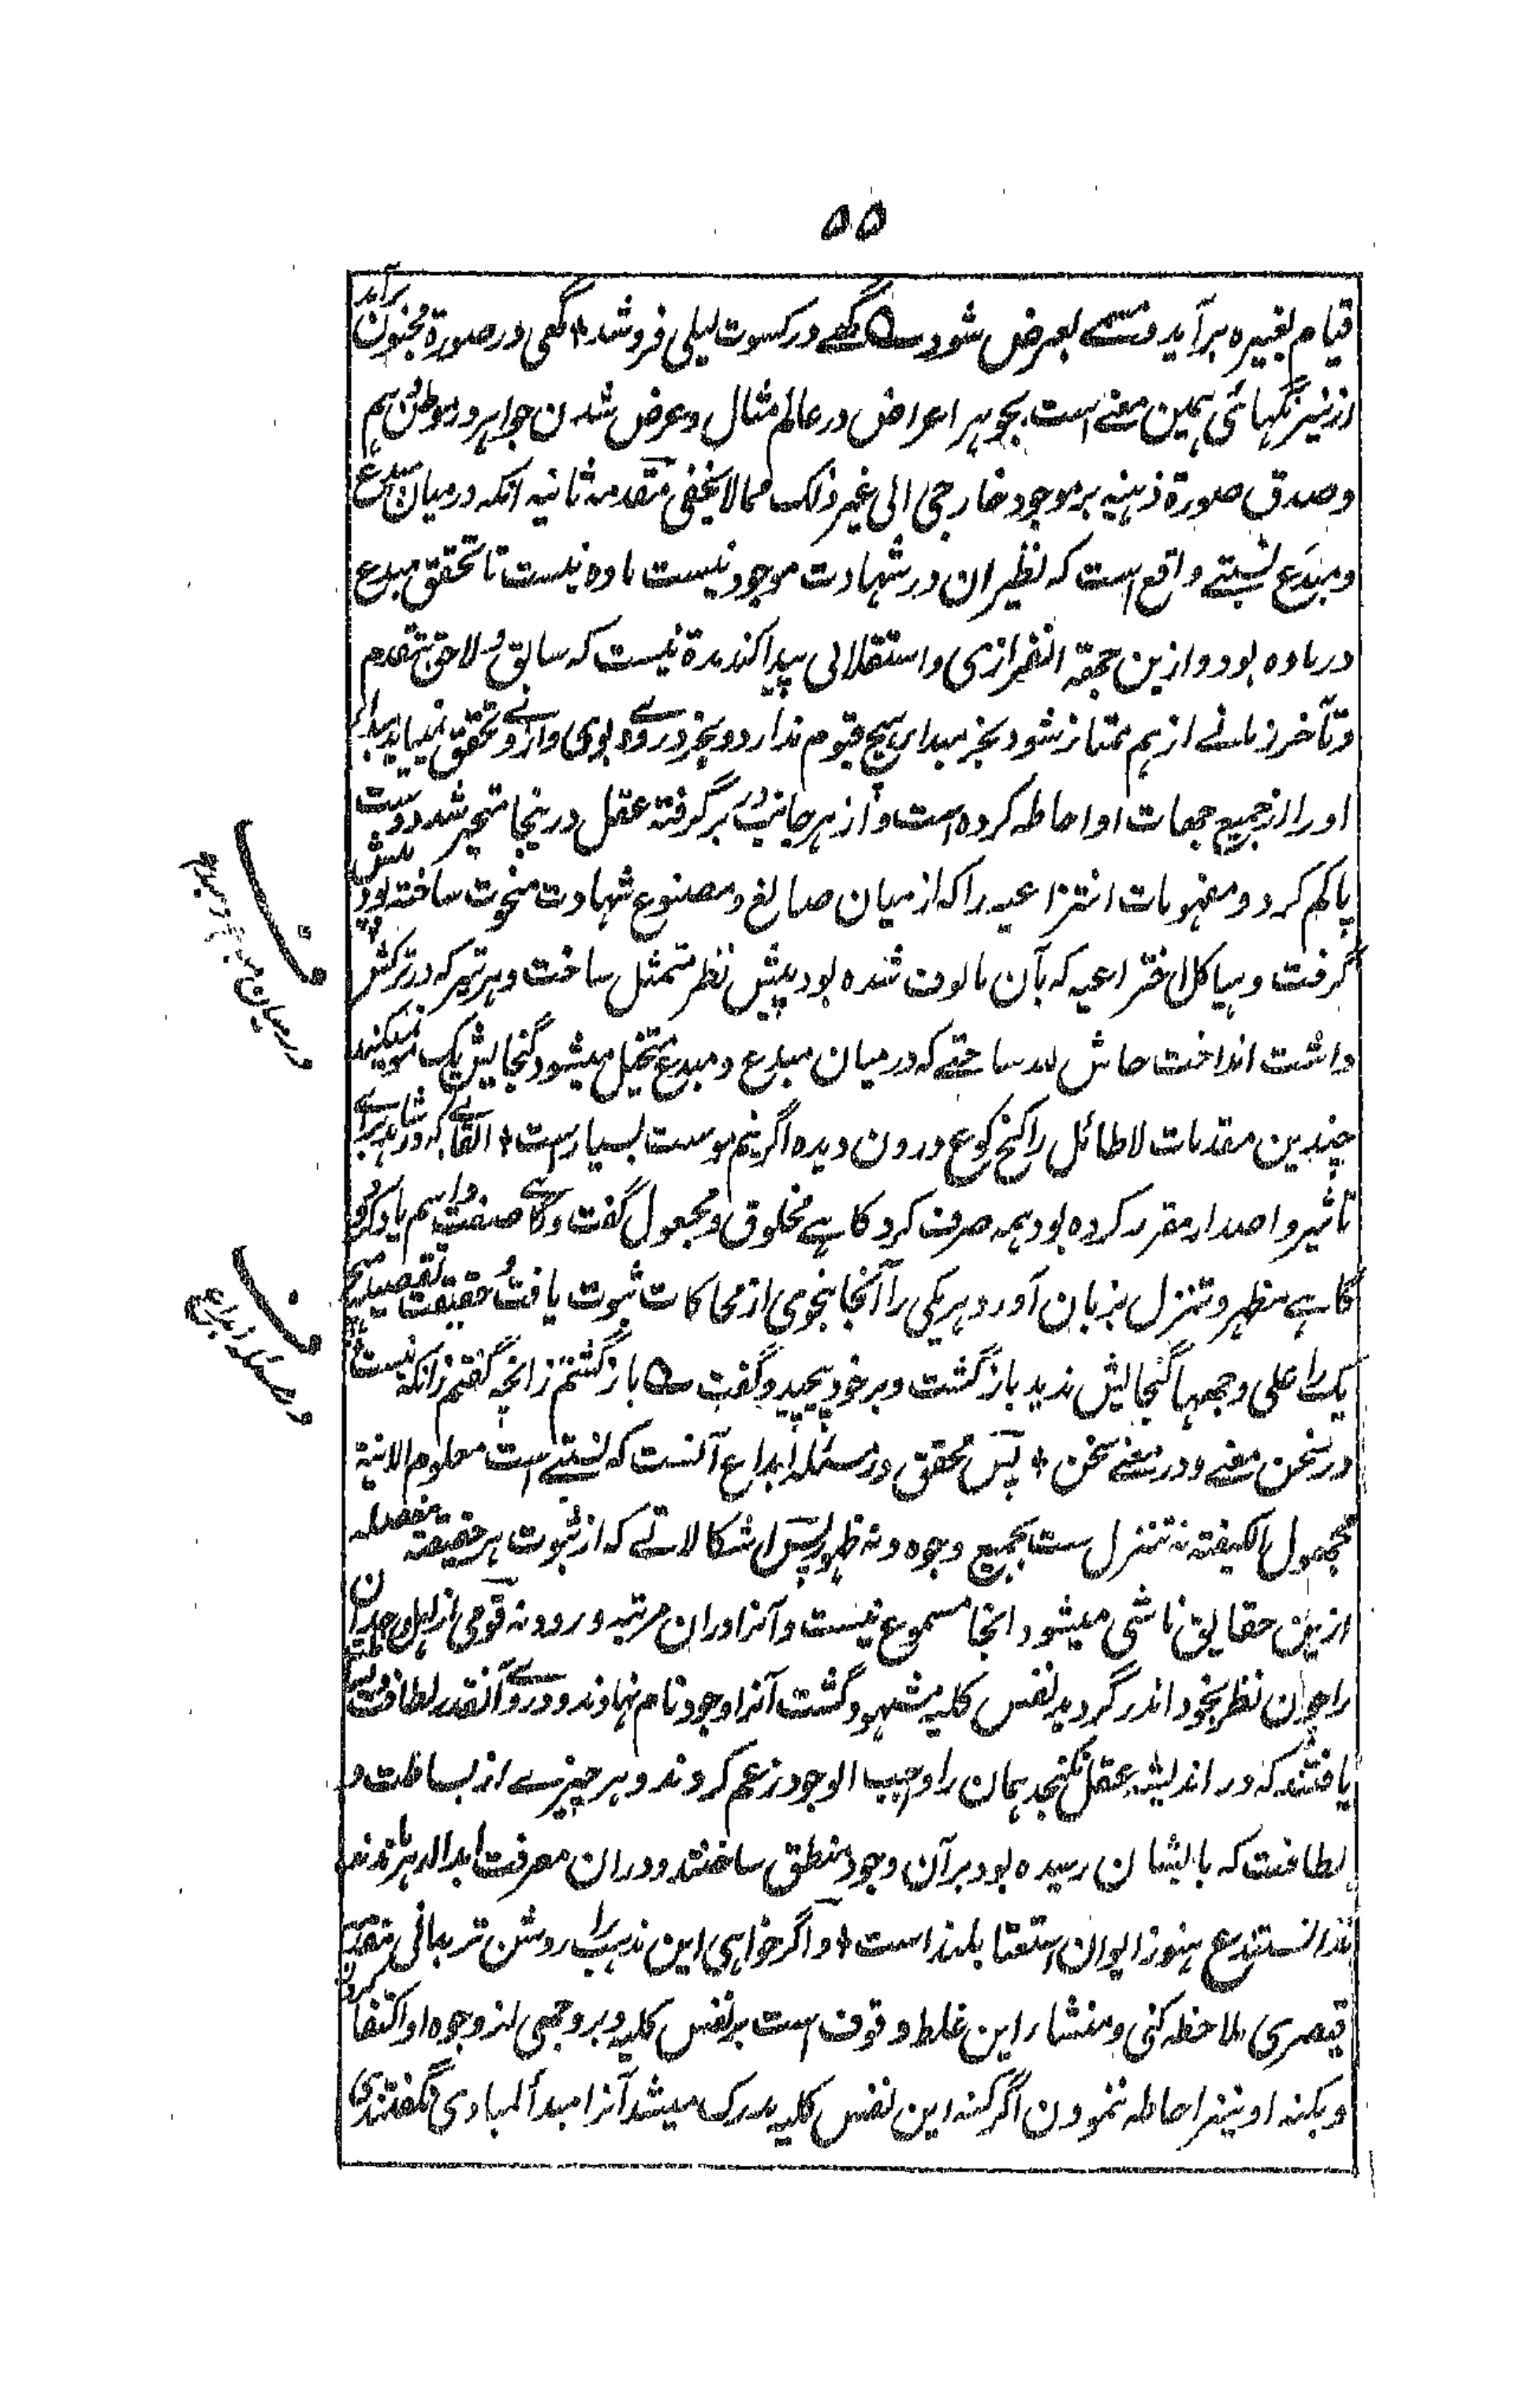 ۵۵
قیام بغیره برآید و متنے بعرض شود ؎ گہے در کسوت لیلی فروشد * گهی در صورة مجنون برآمد
از نیرنگهائی همین معنے است بجوهر اعراض در عالم مثال و عرض شدن جواهر در موطن هم
و صدق صورة ذهنیه بر موجود خارجی الی غیر ذلک مما لا یخفی مقدمه ثانیه آنکه در میان مبدِع
و مبدَع نسبتے واقع است که نظیر ان در شهادت موجود نیست ماده نیست تا تحقق مبدع
در ماده بود و ازین جهة انفرازی و استقلالی پیدا کند مدة نیست که سابق و لاحق بتقدم
و تأخر زمانے از هم ممتاز شود بجز مبدا هیچ قیوم ندارد و بجز در وے بودی و از وے تحقق نمییابد مبدا
او را از جمیع جهات او احاطه کرده است و از هر جانب در بر گرفته عقل درینجا متحیر شد دست
پا گم کرد و مفهومات انتزاعیه را که از میان صانع و مصنوع شهادت منحوت ساخته بود پیش
گرفت و هیاکل اختراعیه که بآن مالوف شده بود پیش نظر متمثل ساخت و هر تیر که در ترکش
داشت انداخت حاش لله ساحتے که در میان مبدع و مبدع متخیل میشود گنجایش یک مو نمیکند
چندین مقدمات لا طائل را کنج کو ع درون دیده اگر نیم موست بسیار است * القابے که در شاهد برای
تاثیر و اصدار مقرر کرده بود همه صرف کرد گاهے مخلوق و مجعول گفت و گاهے صفت و اسم یاد کرد و
گاهے مظهر و تنزل بزبان آورد و هریکی را آنجا بنحوی از محاکات ثبوت یافت و حقیقت تفصیلیه هیچ
یک را علی وجهها گنجایش ندید بازگشت و بر خود پیچید و گفت ؎ باز گشتم زانچه گفتم زانکه نیست
در سخن معنے و در معنے سخن * پس محقق در مسئله ابداع آنست که نسبتے است معلوم الانیة
مجهول الکیفیة نه تنزل ست بجمیع وجوه و نه ظهور پس اشکالاتے که از ثبوت هر حقیقة مفصله
ازین حقایق ناشی میشود انجا مسموع نیست و آنرا در ان مرتبه ورود نه قومی از اهل وجدان
را چون نظر بخود اندر گردید نفس کلیه مشهود گشت آنرا وجود نام نهادند و در وے آنقدر لطافت
یافتند که در اندیشه عقل نگنجد همان را واجب الوجود زعم کردند و هر چیزے از بساطت و
لطافت که بایشان رسیده بود بر آن وجود منطبق ساختند و در ان معرفت ابدالدهر ماندند
ندانستند ع هنوز ایوان استغنا بلند است * و اگر خواهی این مذهب را روشن تر بدانی مقدمه
قیصری ملاحظه کنی و منشاء این غلط وقوف است بر نفس کلیه و بر وجهی از وجوه او اکتفا کردن
و بکنه او نیز احاطه ننمودن اگر کنه این نفس کلیه مدرک میشد آنرا مبدأ المبادی نگفتندی
ف
در میان مبدع و مبدع
ف
در مسئله ابداع